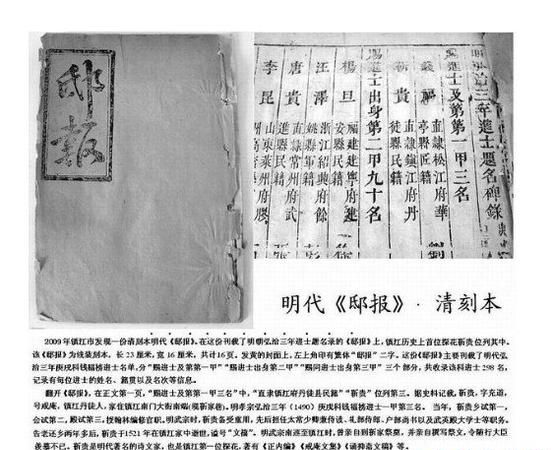 邸報
明弘治三年進士題名碑錄
賜進士及第第一甲三名
錢福 直隸松江府華
亭縣匠籍
靳貴 直隸鎮江府丹
徒縣民籍
賜進士出身第二甲九十名
楊旦 福建建寧府建
安縣民籍
汪澤 浙江紹興府餘
姚縣軍籍
唐貴 直隸常州府武
進縣民籍
李昆 山東萊州府膠
明代《邸报》·清刻本
2009年镇江市发现一份清刻本明代《邸报》。在这份刊载了明朝弘治三年进士题名录的《邸报》上,镇江历史上首位探花靳贵位列其中。
该《邸报》为线装刻本,长23厘米,宽16厘米,共计16页。发黄的封面上,左上角印有繁体“邸报”二字。这份《邸报》主要刊载了明代弘
治三年庚戌科钱福榜进士名单,分“赐进士及第第一甲”“赐进士出身第二甲”“赐同进士出身第三甲”三个部分,共收录该科进士298名,
记录有每位进士的姓名、籍贯以及名次等信息。
翻开《邸报》,在正文第一页,“赐进士及第第一甲三名”中,“直隶镇江府丹徒县民籍”“靳贵”位列第三。据史料记载,靳贵,字充道,
号戒庵,镇江丹徒人,家住镇江南门大街南端(现靳家巷)。明孝宗弘治三年(1490)庚戌科钱福榜进士一甲第三名。当年,靳贵乡试第一,
会试第二,殿试第三,授翰林编修官职。明武宗时,靳贵备受重用,先后担任太常少卿兼侍读、礼部侍郎、户部尚书以及武英殿大学士等职务。
告老还乡两年多后,靳贵于1521年在镇江家中逝世,谥号“文僖”。明武宗南巡至镇江时,曾亲自到靳家祭奠,并亲自撰写祭文,令随行大臣
羡慕不已。靳贵是明代著名的诗文家,也是镇江第一位探花,著有《正内编》《戒庵文集》《诵抑斋文稿》等。